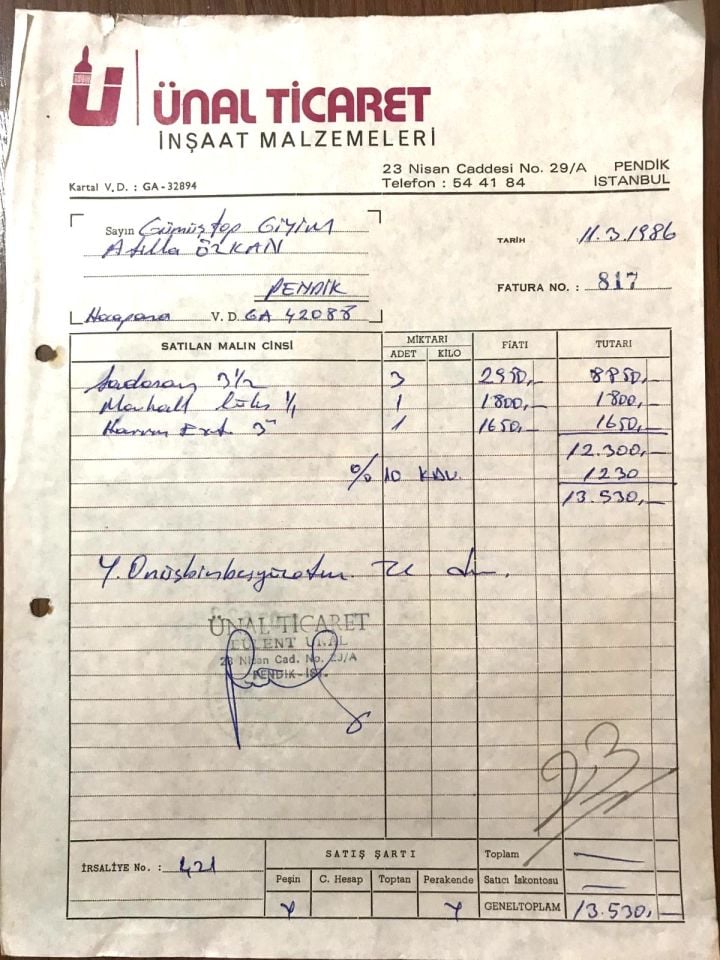 ÜNAL TİCARET
İNŞAAT MALZEMELERİ
Kartal V.D. : GA - 32894
23 Nisan Caddesi No. 29/A PENDİK
Telefon : 54 41 84 İSTANBUL
Sayın Gümüştop Giyim
Atilla ÖZKAN
TARİH 11.3.1986
PENDİK
FATURA NO. : 817
V.D. GA 42088
SATILAN MALIN CİNSİ MİKTARI FİATI TUTARI
ADET KİLO
3 1/2 3 2950,- 8850,-
Marshall lüks 1/1 1 1800,- 1800,-
3" 1 1650,- 1650,-
12.300,-
% 10 KDV. 1230
13.530,-
Y. Onüçbinbeşyüzotuz TL dır.
ÜNAL TİCARET
BÜLENT ÜNAL
23 Nisan Cad. No. 29/A
PENDİK - İST.
23
İRSALİYE No. : 421
SATIŞ ŞARTI
Peşin C. Hesap Toptan Perakende
Toplam
Satıcı İskontosu
GENELTOPLAM 13.530,-